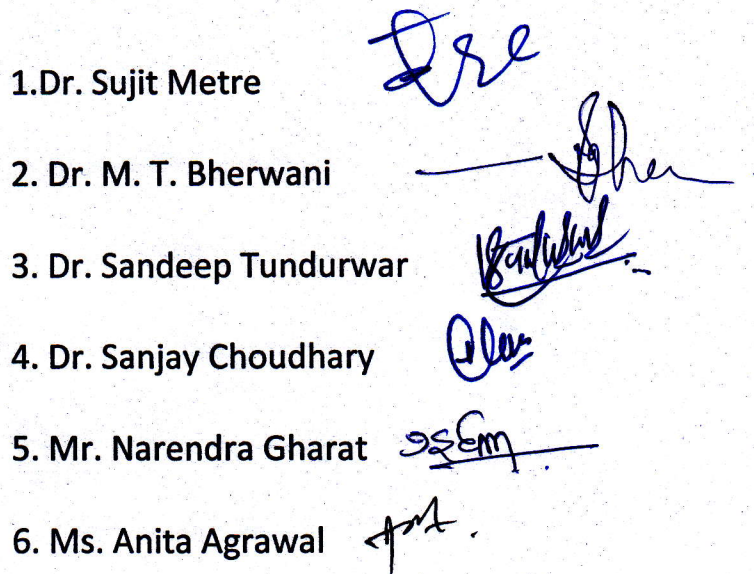 1.Dr. Sujit Metre
2. Dr. M. T. Bherwani
3. Dr. Sandeep Tundurwar
4. Dr. Sanjay Choudhary
5. Mr. Narendra Gharat
6. Ms. Anita Agrawal